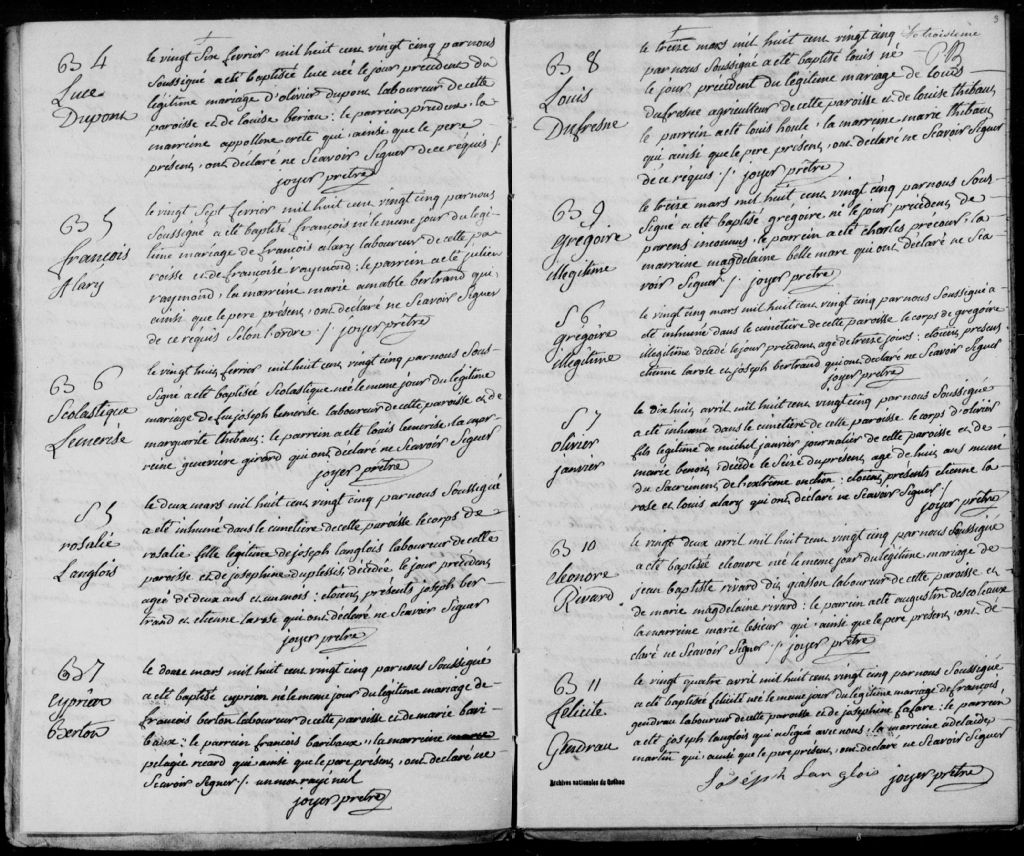 B 4
Luce
Dupont
le vingt Six fevrier mil huit cent vingt cinq par nous
Soussigné a eté baptisée luce née le jour precedent du
légitime mariage d'olivier dupont laboureur de cette
paroisse et de louise beriau : le parrein prudent, la
marreine appolline crete qui, ainsi que le pere
présent, ont déclaré ne Scavoir Signer de ce réquis /.
joyer prêtre
B 5
françois
Alary
le vingt Sept fevrier mil huit cent vingt cinq par nous
Soussigné a eté baptisé françois né le meme jour du légi-
time mariage de françois alary laboureur de cette pa
roisse et de françoise raymond : le parrein a eté julien
raymond, la marreine marie amable bertrand qui,
ainsi que le pere présent, ont déclaré ne Scavoir Signer
de ce réquis Selon l'ordre ./. joyer prêtre
B 6
Scolastique
Lemerise
le vingt huit fevrier mil huit cent vingt cinq par nous Sous-
Signé a eté baptisée Scolastique née le meme jour du légitime
mariage de feu joseph lemerise laboureur de cette paroisse et de
marguerite thibaut : le parrein a eté louis lemerise, la mar
reine genevieve girard qui ont déclaré ne Scavoir Signer
joyer prêtre
S 5
rosalie
Langlois
le deux mars mil huit cent vingt cinq par nous Soussigné
a eté inhumé dans le cimetière de cette paroisse le corps de
rosalie fille légitime de joseph langlois laboureur de cette
paroisse et de josephine duplessis, décédée le jour précédent
agée de deux ans et un mois : etoient présents joseph ber-
trand et etienne larose qui ont déclaré ne Scavoir Signer
joyer prêtre
B 7
cyprien
Berton
le douze mars mil huit cent vingt cinq par nous Soussigné
a eté baptisé cyprien né le meme jour du légitime mariage de
françois berton laboureur de cette paroisse et de marie bari
baux : le parrein françois baribaux, la marreine marie
pelagie ricard qui ainsi que le pere présent, ont déclaré ne
Scavoir Signer /. un mot rayé nul
joyer prêtre
3
fo troisieme
B 8
Louis
Dufresne
le treize mars mil huit cent vingt cinq
par nous Soussigné a eté baptisé louis né
le jour précédent du légitime mariage de louis
dufresne agriculteur de cette paroisse et de louise thibaut
le parrein a eté louis houle, la marreine marie thibaut
qui ainsi que le pere présent, ont déclaré ne Scavoir Signer
de ce réquis ./. joyer prêtre
B 9
Grégoire
illégitime
le treize mars mil huit cent vingt cinq par nous Sous-
Signé a eté baptisé grégoire né le jour précédent de
parens inconnus : le parrein a eté charles précour, la
marreine magdelaine belle mare qui ont déclaré ne Sca-
voir Signer /. joyer prêtre
S 6
grégoire
illégitime
le vingt cinq mars mil huit cent vingt cinq par nous Soussigné a
eté inhumé dans le cimetière de cette paroisse le corps de grégoire
illégitime décédé le jour précédent agé de treize jours : etoient présens
etienne larose et joseph bertrand qui ont déclaré ne Scavoir Signer
joyer prêtre
S 7
olivier
janvier
le dix huit avril mil huit cent vingt cinq par nous Soussigné
a eté inhumé dans le cimetière de cette paroisse le corps d'olivier
fils légitime de michel janvier journalier de cette paroisse et de
marie benoit, décédé le Seize du présent agé de huit ans muni
du Sacrement de l'extrême onction : etoient présents etienne la
rose et louis alary qui ont déclaré ne Scavoir Signer /
joyer prêtre
B 10
eleonore
Rivard
le vingt deux avril mil huit cent vingt cinq par nous Soussigné
a eté baptisée eleonore née le meme jour du légitime mariage de
jean baptiste rivard dit giasson laboureur de cette paroisse et
de marie magdelaine rivard : le parrein a eté augustin descoteaux
la marreine marie lesieur qui, ainsi que le pere présent, ont dé
claré ne Scavoir Signer ./. joyer prêtre
B 11
félicité
Gendrau
le vingt quatre avril mil huit cent vingt cinq par nous Soussigné
a eté baptisée félicité née le meme jour du légitime mariage de françois
gendrau laboureur de cette paroisse et de josephine lafare : le parrein
a eté joseph langlois qui a Signé avec nous, la marreine adelaide
martin qui, ainsi que le pere présent, ont déclaré ne Scavoir Signer
Joseph Langlois joyer prêtre
Archives nationales du Québec